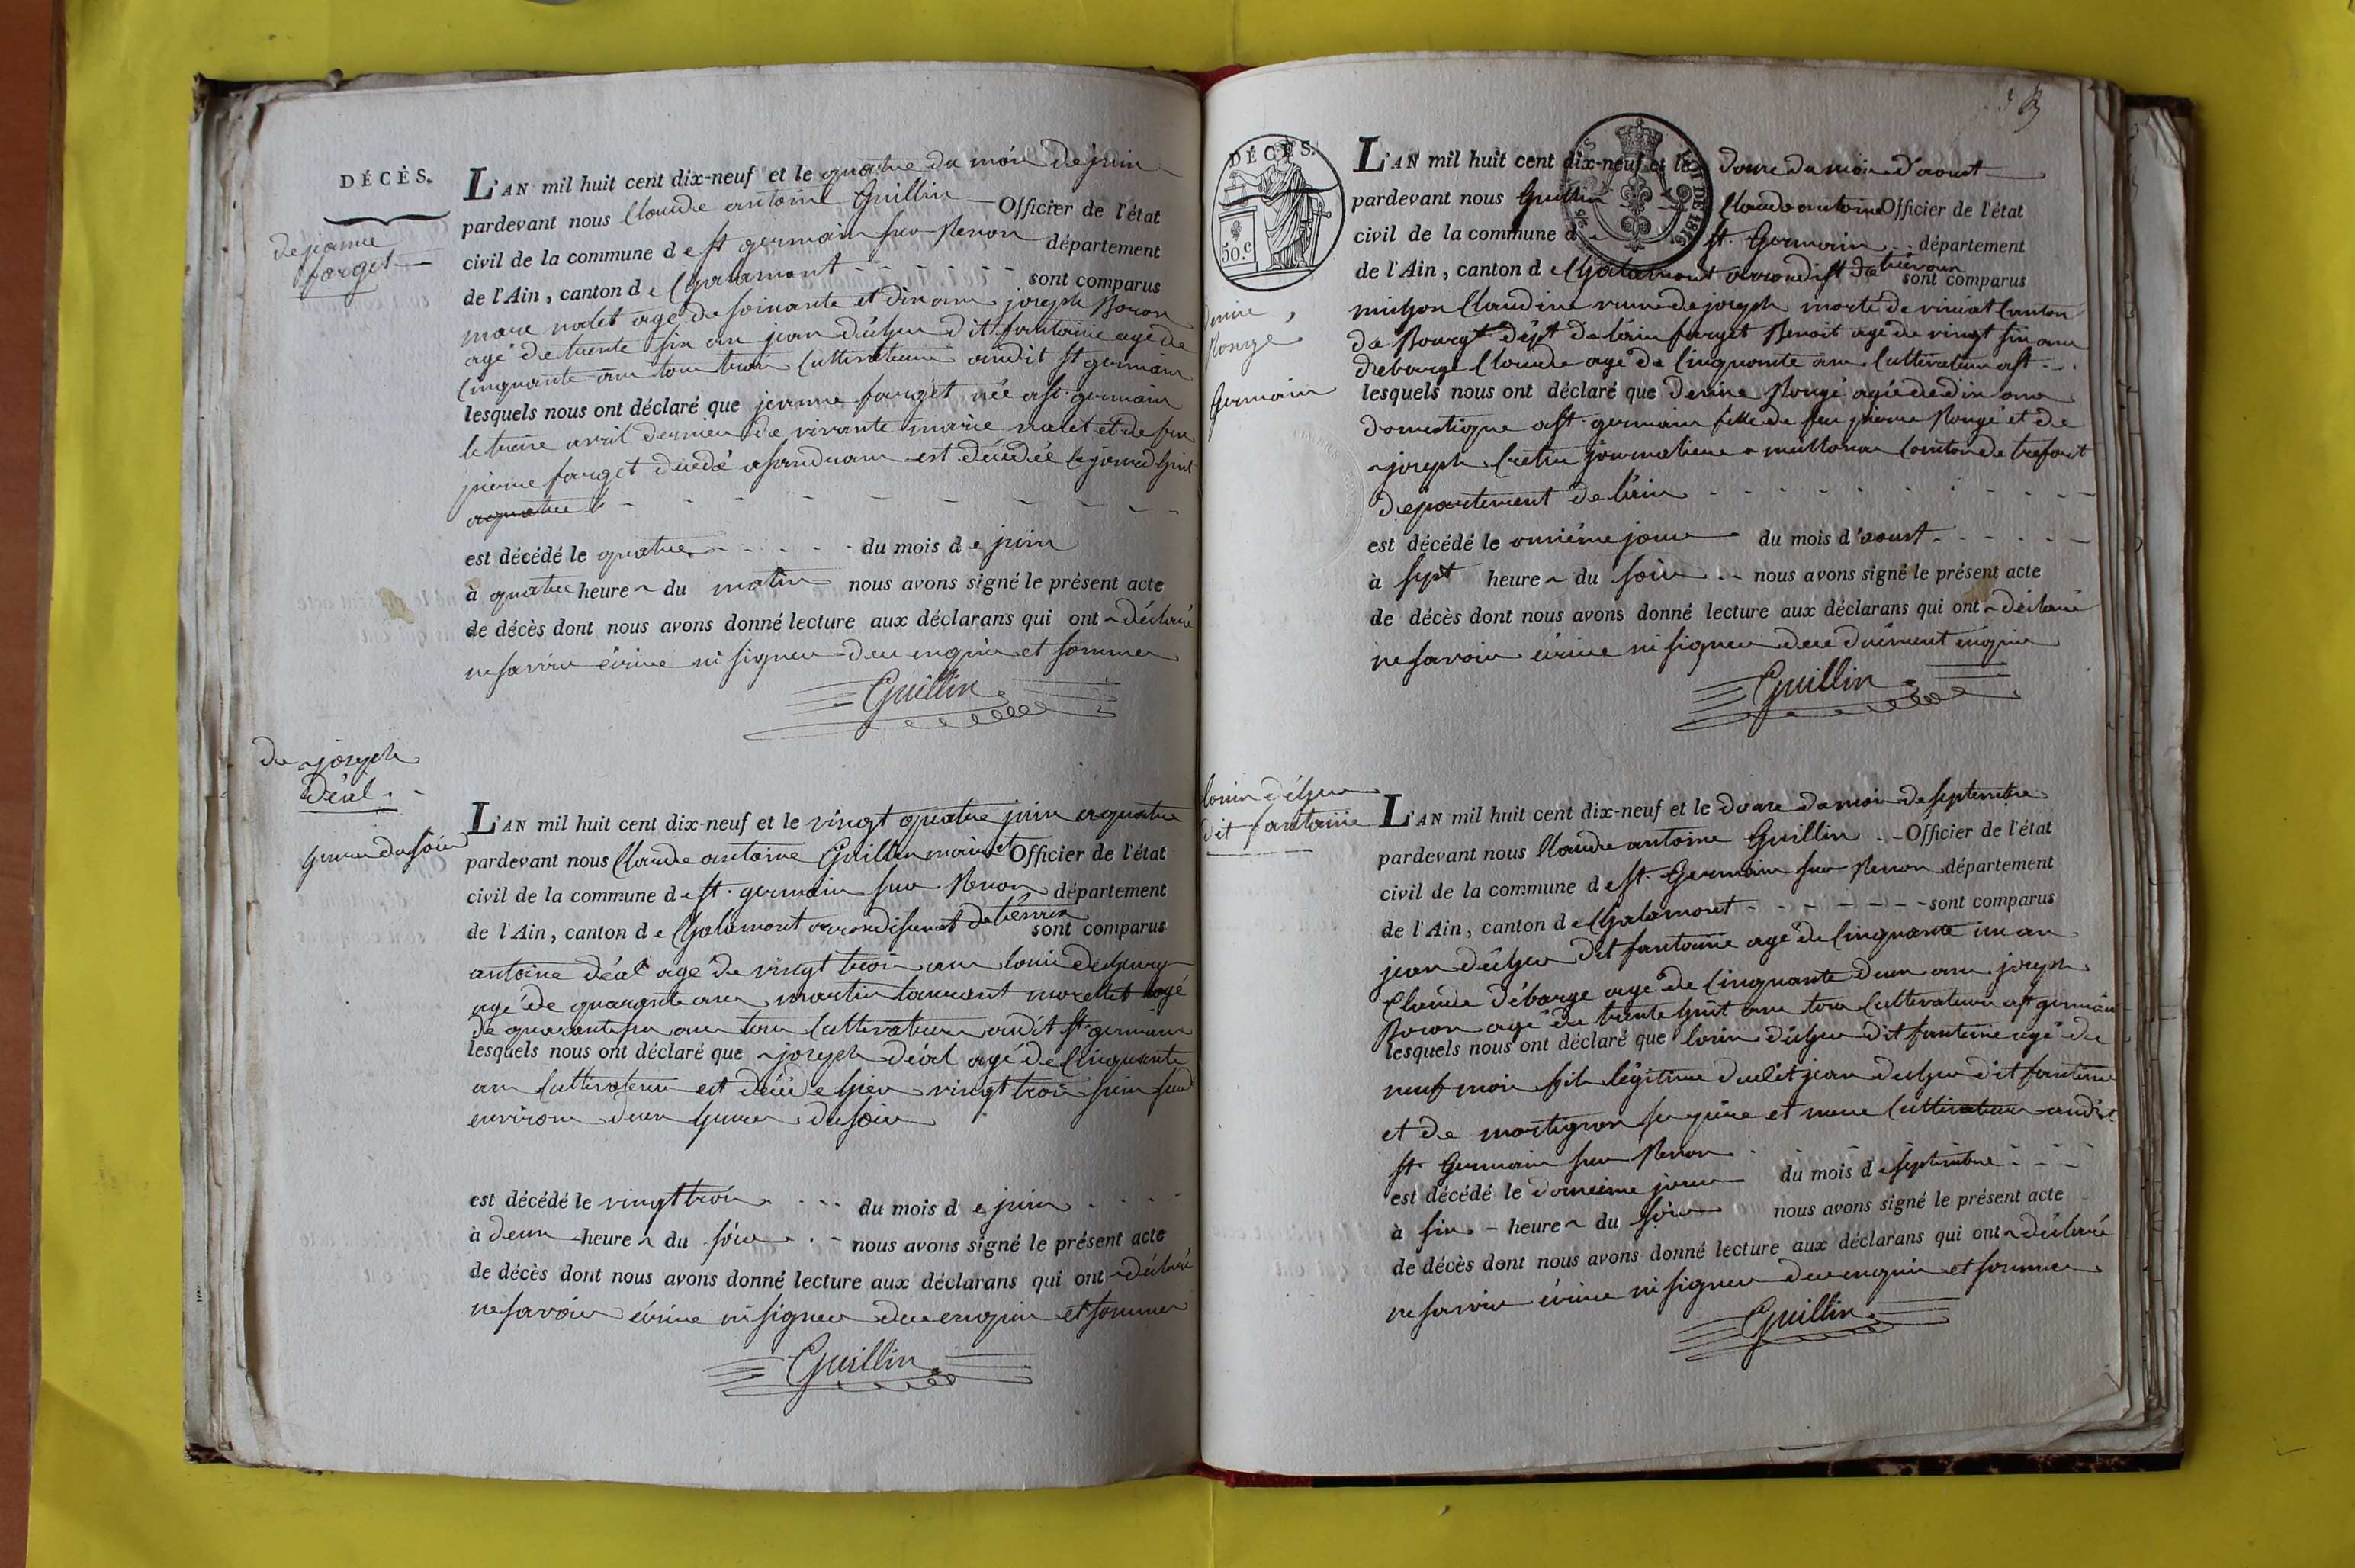 DÉCÈS.
de jeanne
farget
L'AN mil huit cent dix-neuf et le quatre du mois de juin
pardevant nous Claude antoine Guillin Officier de l'état
civil de la commune de st germain sur Renon département
de l'Ain, canton de Chalamont sont comparus
marc nalet agé de soixante et dix ans joseph Boron
agé de trente six ans jean déchu dit fantaine agé de
cinquante ans tous trois cultivateurs audit st germain
lesquels nous ont déclaré que jeanne farget née a st germain
le treize avril dernier de vivante marie nalet et de feu
pierre farget décédé est décédée cejourd'huit
est décédé le quatre du mois de juin
à quatre heures du matin nous avons signé le présent acte
de décès dont nous avons donné lecture aux déclarans qui ont déclaré
ne savoir écrire ni signer de ce enquis et sommés
Guillin
de joseph
déal
heures du soir
L'AN mil huit cent dix-neuf et le vingt quatre juin a quatre
pardevant nous Claude antoine Guillin maire et Officier de l'état
civil de la commune de st. germain sur Renon département
de l'Ain, canton de Chalamont arrondissement de trévoux sont comparus
antoine déal agé de vingt trois ans louis
agé de quarante ans martin morellet agé
de quarante six ans tous cultivateurs audit st germain
lesquels nous ont déclaré que joseph déal agé de cinquante
ans cultivateur est décédé hier vingt trois juin sud
environs deux heures du soir
est décédé le vingt trois du mois de juin
à deux heures du soir nous avons signé le présent acte
de décès dont nous avons donné lecture aux déclarans qui ont déclaré
ne savoir écrire ni signer de ce enquis et sommés
Guillin
DÉCÈS.
50.c
DE 1816
denise
Rongé
Germain
L'AN mil huit cent dix-neuf et le douze du mois d'aoust
pardevant nous Guillin Claude antoine Officier de l'état
civil de la commune de st. Germain département
de l'Ain, canton de Chalamont arrondist de trévoux sont comparus
michon Claudine veuve de joseph morte de viriat canton
de Bourg dépt de l'ain farget Benoit agé de vingt six ans
debarge Claude agé de cinquante ans cultivateur a st
lesquels nous ont déclaré que denise Rongé agée de dix ans
domestique a st. germain fille de feu pierre Rongé et de
joseph journaliere a meillonas canton de trefort
département de l'ain
est décédé le onzième jour du mois d'aoust
à sept heures du soir nous avons signé le présent acte
de décès dont nous avons donné lecture aux déclarans qui ont déclaré
ne savoir écrire ni signer de ce duement enquis
Guillin
louis déchu
dit fantaine
L'AN mil huit cent dix-neuf et le douze du mois de septembre
pardevant nous Claude antoine Guillin Officier de l'état
civil de la commune de st Germain sur Renon département
de l'Ain, canton de Chalamont sont comparus
jean déchu dit fantaine agé de cinquante un an
Claude débarge agé de cinquante deux ans joseph
Boron agé de trente huit ans tous cultivateurs a st germain
lesquels nous ont déclaré que louis déchu dit fantaine agé de
neuf mois fils légitime dudit jean dechu dit fantaine
et de ses père et mere cultivateurs audit
st Germain sur Renon
est décédé le douzième jour du mois de septembre
à six heures du soir nous avons signé le présent acte
de décès dont nous avons donné lecture aux déclarans qui ont déclaré
ne savoir écrire ni signer de ce enquis et sommés
Guillin